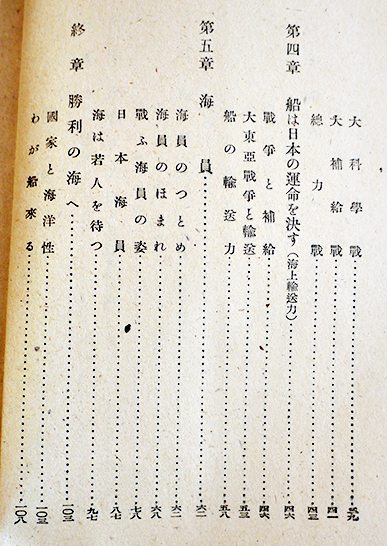 大科學戰……三九
大補給戰……四一
總力戰……四三
第四章 船は日本の運命を決す（海上輸送力）……四六
戰爭と補給……四六
大東亞戰爭と輸送……五三
船の輸送力……五八
第五章 海員……六一
海員のつとめ……六二
海員のほまれ……六八
戰ふ海員の姿……七八
日本海員……八七
海は若人を待つ……九七
終章 勝利の海へ……一〇三
國家と海洋性……一〇三
わが船來る……一〇八